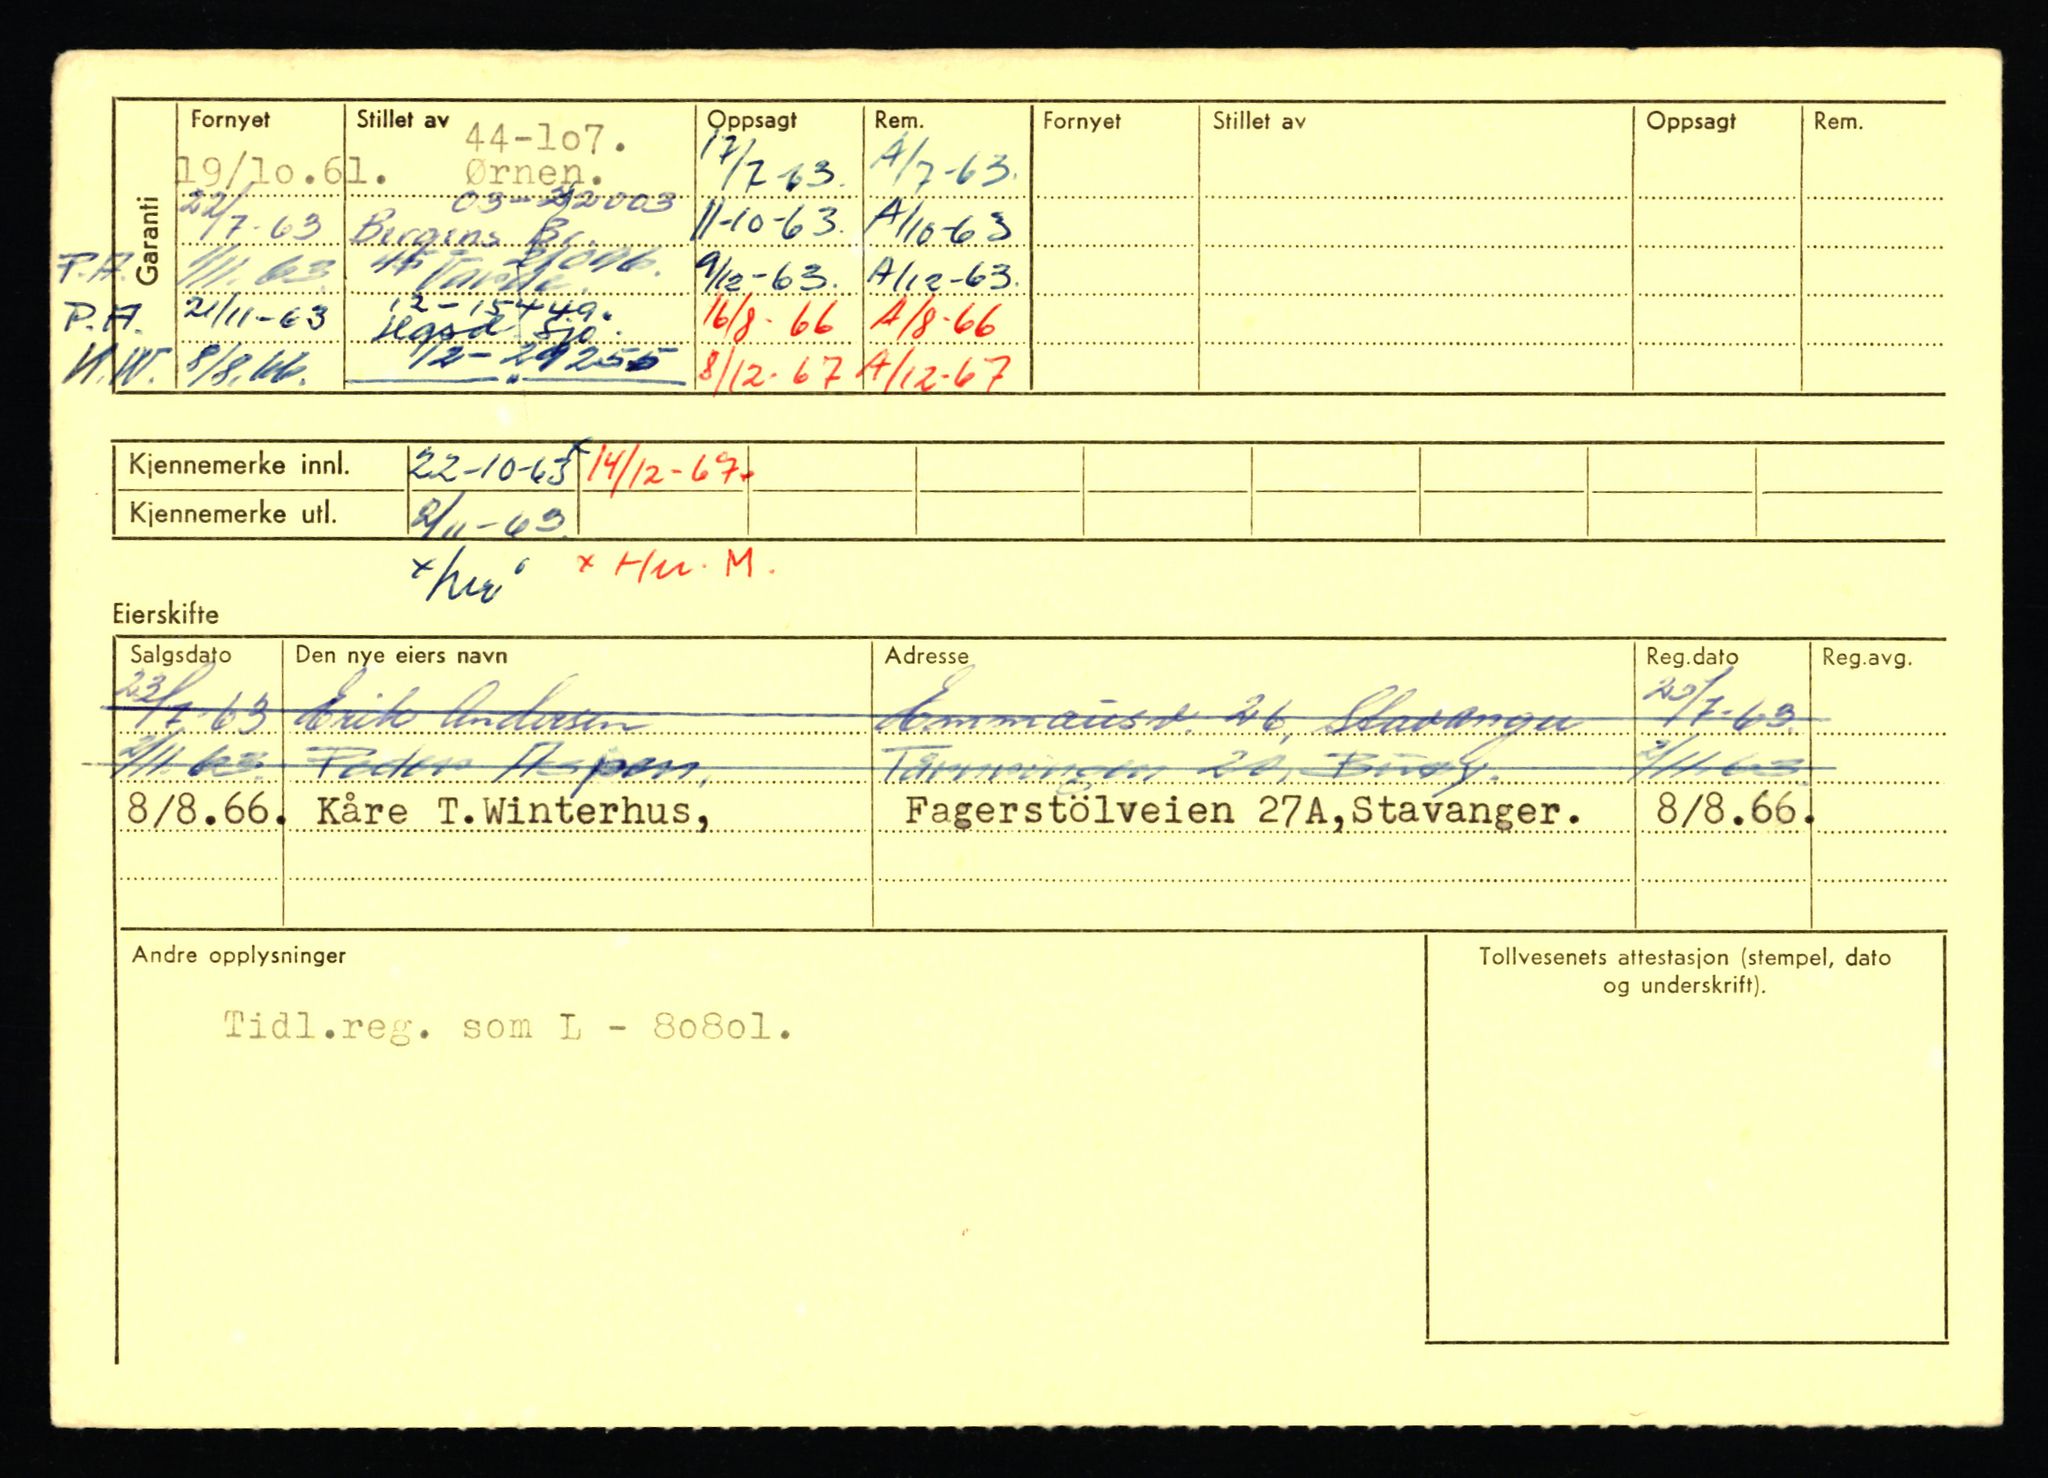 Garanti
Fornyet Stillet av Oppsagt Rem. Fornyet Stillet av Oppsagt Rem.
44-lo7.
19/lo.61. Ørnen. 17/7-63. A/7-63.
03-32003
22/7-63 Bergens Br. 11-10-63. A/10-63
P.A. 1/11.63. 9/12-63. A/12-63.
12-15449.
P.A. 21/11-63 Sjø. 16/8-66 A/8-66
K.W. 8/8.66. 12-29255 8/12-67 A/12-67
Kjennemerke innl. 22-10-63 x 14/12-67.
Kjennemerke utl. 2/11-63.
x x M.
Eierskifte
Salgsdato Den nye eiers navn Adresse Reg.dato Reg.avg.
23/7-63 Erik Andersen Emmausv. 26, Stavanger 23/7-63.
2/11.63. Peder Aspen, 20, 2/11.63
8/8.66. Kåre T.Winterhus, Fagerstölveien 27A,Stavanger. 8/8.66.
Andre opplysninger
Tollvesenets attestasjon (stempel, dato
og underskrift).
Tidl.reg. som L - 8o8o1.